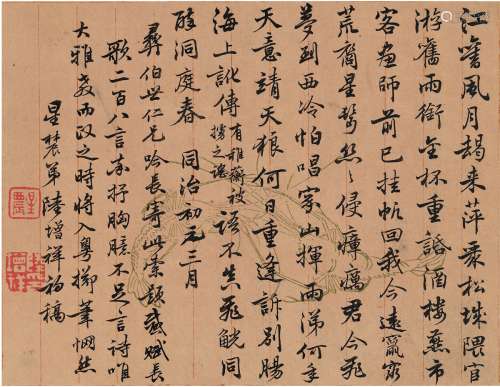 江皋風月朅來萍聚松陵隈官
游舊雨銜金杯重話酒樓燕市
客師前已挂帆回我今遠竄窮
荒裔星鬢絲〻侵瘴癘君今飛
夢到西泠怕唱家山揮雨涕何年
天意靖天狼何日重逢訴別腸
海上訛傳有雅衡被擄之謠語不真飛觥同
醉洞庭春 同治初元三月
彝伯世仁兄吟長寄此索題賦長
歌二百八言抒胸臆不足言詩唯
大雅教而政之時將入粵擲筆惘然
星農弟陸增祥初稿
星農